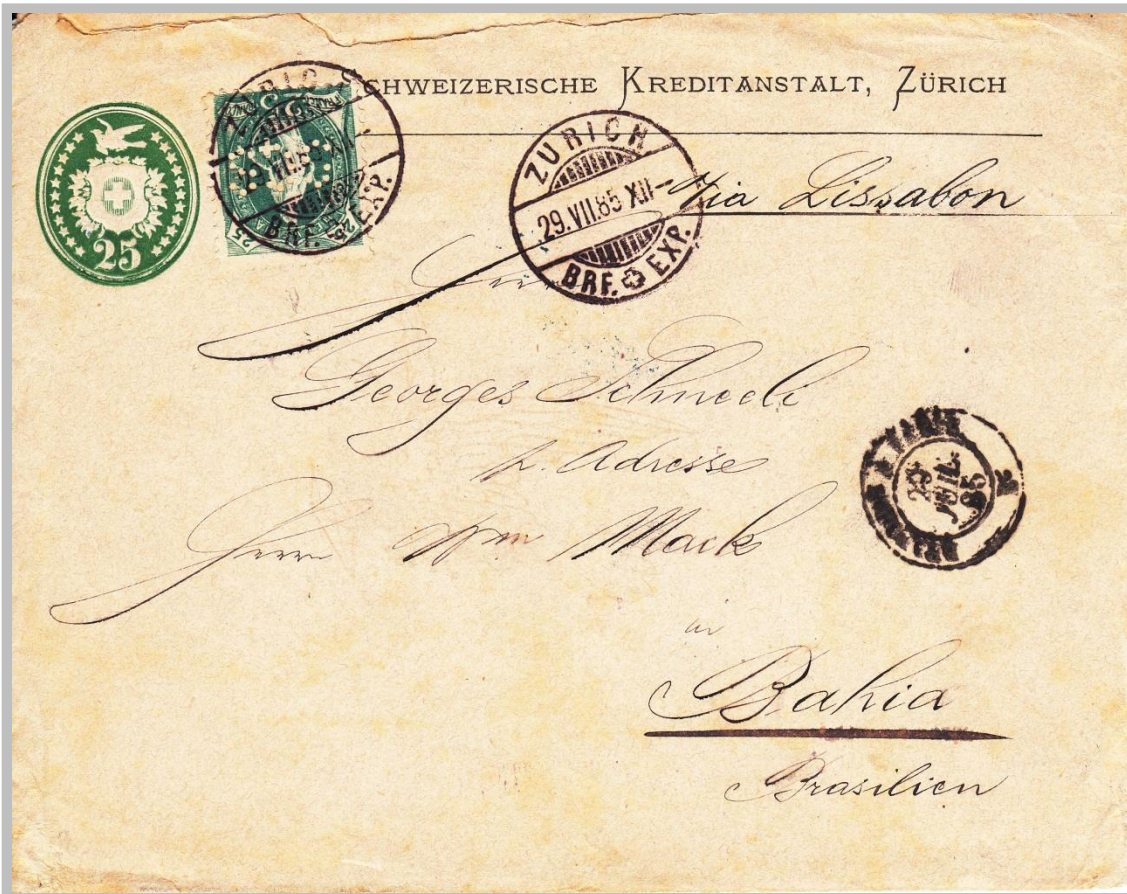 SCHWEIZERISCHE KREDITANSTALT, ZÜRICH
25
25
BRF. EXP.
ZÜRICH
29.VII.85 XII
BRF. EXP.
via Lissabon
Herrn
Georges Schneeli
p. Adresse
Herrn Wm Mack
in
Bahia
Brasilien
29
JUIL
85